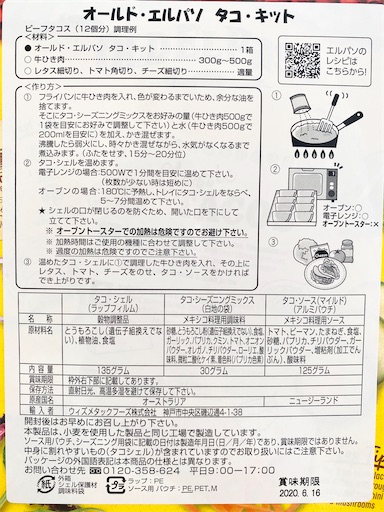 オールド・エルパソ タコ・キット
ビーフタコス(12個分)調理例
<材料>
● オールド・エルパソ タコ・キット 1箱
○ 牛ひき肉 300g~500g
○ レタス細切り、トマト角切り、チーズ細切り 適量
エルパソの
レシピは
こちらから!
<作り方>
① フライパンに牛ひき肉を入れ、色が変わるまでいため、余分な油を
捨てます。
そこにタコ・シーズニングミックスをお好みの量(牛ひき肉500gで
1袋を目安にお好みで調整して下さい)と水(牛ひき肉500gで
200mlを目安に)を加え、かき混ぜます。
沸騰したら弱火にし、時々かき混ぜながら、水気がなくなるまで
煮込みます。(ふたをせず、15分~20分位)
② タコ・シェルを温めます。
電子レンジの場合:500Wで1分間を目安に温めて下さい。
(枚数が少ない時は短めに)
オーブンの場合:180℃に予熱し、トレイにタコ・シェルをならべ、
5~7分間温めて下さい。
★ シェルの口が閉じるのを防ぐため、開いた口を下にし
て立てて下さい。
※ オーブントースターでの加熱は危険ですのでお避け下さい。
※ 加熱時間はご使用の機種に合わせて調整して下さい。
※ 過度の加熱は危険ですのでご注意下さい。
③ 温めたタコ・シェルに①で調理した牛ひき肉を入れ、その上に
レタス、トマト、チーズをのせ、タコ・ソースをかければ
できあがり!
①
②
オーブン:○
電子レンジ:○
オーブントースター:×
③
タコ・シェル
(ラップフィルム) タコ・シーズニングミックス
(白地の袋) タコ・ソース(マイルド)
(アルミパウチ)
名 称 穀物調整品 メキシコ料理用調味料 メキシコ料理用ソース
原材料名 とうもろこし(遺伝子組換えでな
い)、植物油、食塩
砂糖、とうもろこし粉(遺伝子組換えでない)、食塩、
ガーリック、パプリカ、クミン、トマト、オニオン
パウダー、オレガノ、チリパウダー、ローリエ、酸
味料、微粒二酸化ケイ素、香料(パプリカ由来)
トマト、ピーマン、たまねぎ、食塩、
砂糖、パプリカ、チリパウダー、ガー
リックパウダー、増粘剤(加工でん
ぷん)、酸味料
内容量 135グラム 30グラム 125グラム
賞味期限 枠外右下部に記載してあります。
保存方法 直射日光、高温多湿を避けて保存して下さい。
原産国 オーストラリア ニュージーランド
輸入者 ウィズメタックフーズ株式会社 神戸市中央区磯辺通4-1-38
開封後はお早めにお召し上がり下さい。
本製品は、小麦を使用した製品と同じ工場で製造しています。
ソース用パウチ、シーズニング用袋に記載の日付は製造年月日(日/月/年)であり、賞味期限ではございません。
中身に割れやすいもの(タコシェル)が含まれていますのでお取り扱いにはご注意下さい。
パッケージの外国語表記は本商品の仕様とは異なります。
お問い合わせ先 0120-358-624 平日9:00-17:00
紙
外箱
シェル保護材
調味料袋
プラ
ラップ:PE
ソース用パウチ:PE,PET,M
賞味期限
2020. 6.16